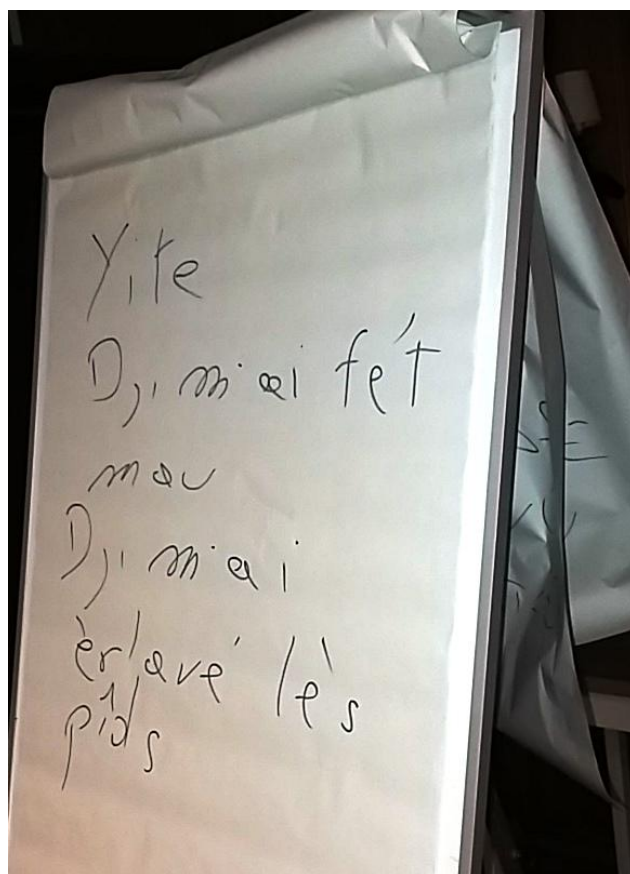 Yite
Dji m'ai fét
mau
Dji m'ai
èrlavé lès
pîds